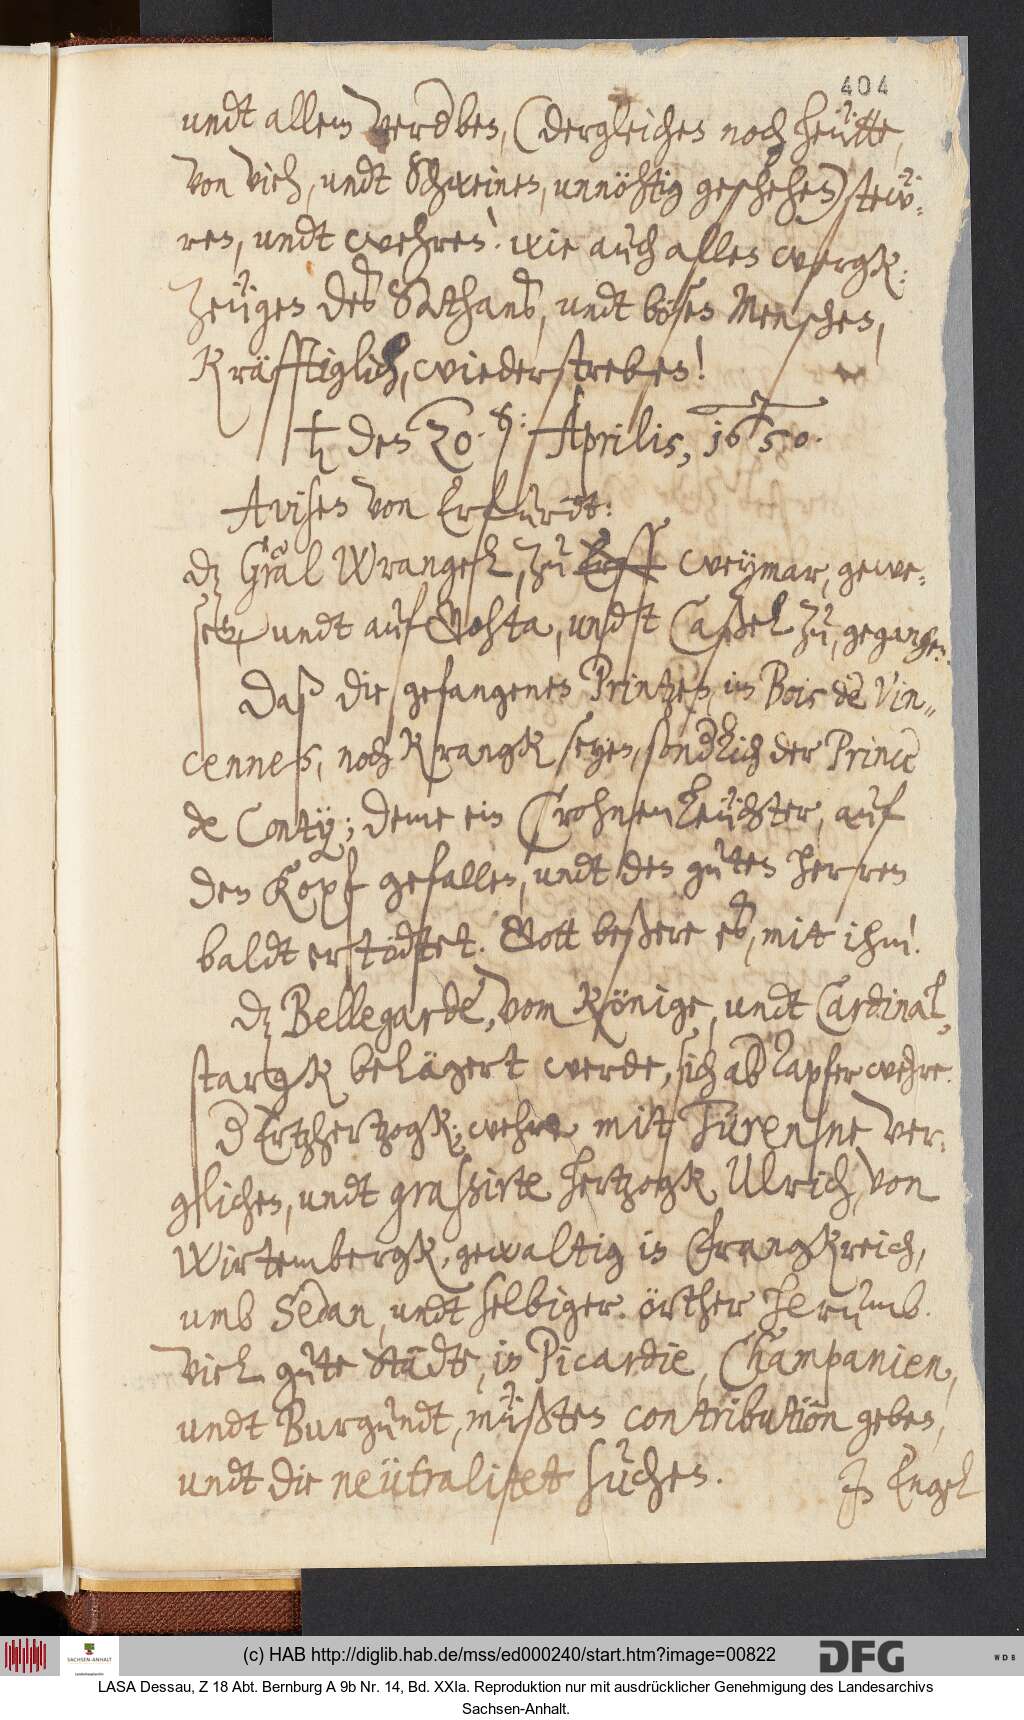 404
undt allem verderben, (dergleichen noch heütte,
von vieh, undt Schweinen, unnöhtig geschehen) steü-
ren, undt wehren! wie auch allen wergk-
zeügen deß Sathanß, undt bösen Menschen,
Kräfftiglich, wiederstreben!
♄ den 20. Aprilis, 1650.
Avisen von Erfurdt:
dz Gräl Wrangel, zu Erff Weymar, gewe-
sen, undt auf Gohta, undt Caßel zu, gegangen.
Daß die gefangenen Printzen, im Bois de Vin-
cennes, noch Krangk seyen, sonderlich der Prince
de Conty; deme ein Crohnenleüchter, auf
den Kopf gefallen, undt den guten herren
baldt ertödtet. Gott beßere eß, mit ihm!
dz Bellegarde, vom Könige, undt Cardinal,
stargk belägert werde, sich aber tapfer wehre.
Ertzhertzogk, wehre mit Türenne ver-
glichen, undt grassirte hertzogk Ulrich, von
Wirtembergk, gewaltig in Frangkreich,
umb Sedan, undt selbiger örther herumb.
Viel gute Städte, in Picardie, Champanien,
undt Burgundt, müßten contribution geben,
undt die neütralitet suchen.
In Engel
(c) HAB http://diglib.hab.de/mss/ed000240/start.htm?image=00822
SACHSEN-ANHALT
DFG
WDB
LASA Dessau, Z 18 Abt. Bernburg A 9b Nr. 14, Bd. XXIa. Reproduktion nur mit ausdrücklicher Genehmigung des Landesarchivs
Sachsen-Anhalt.